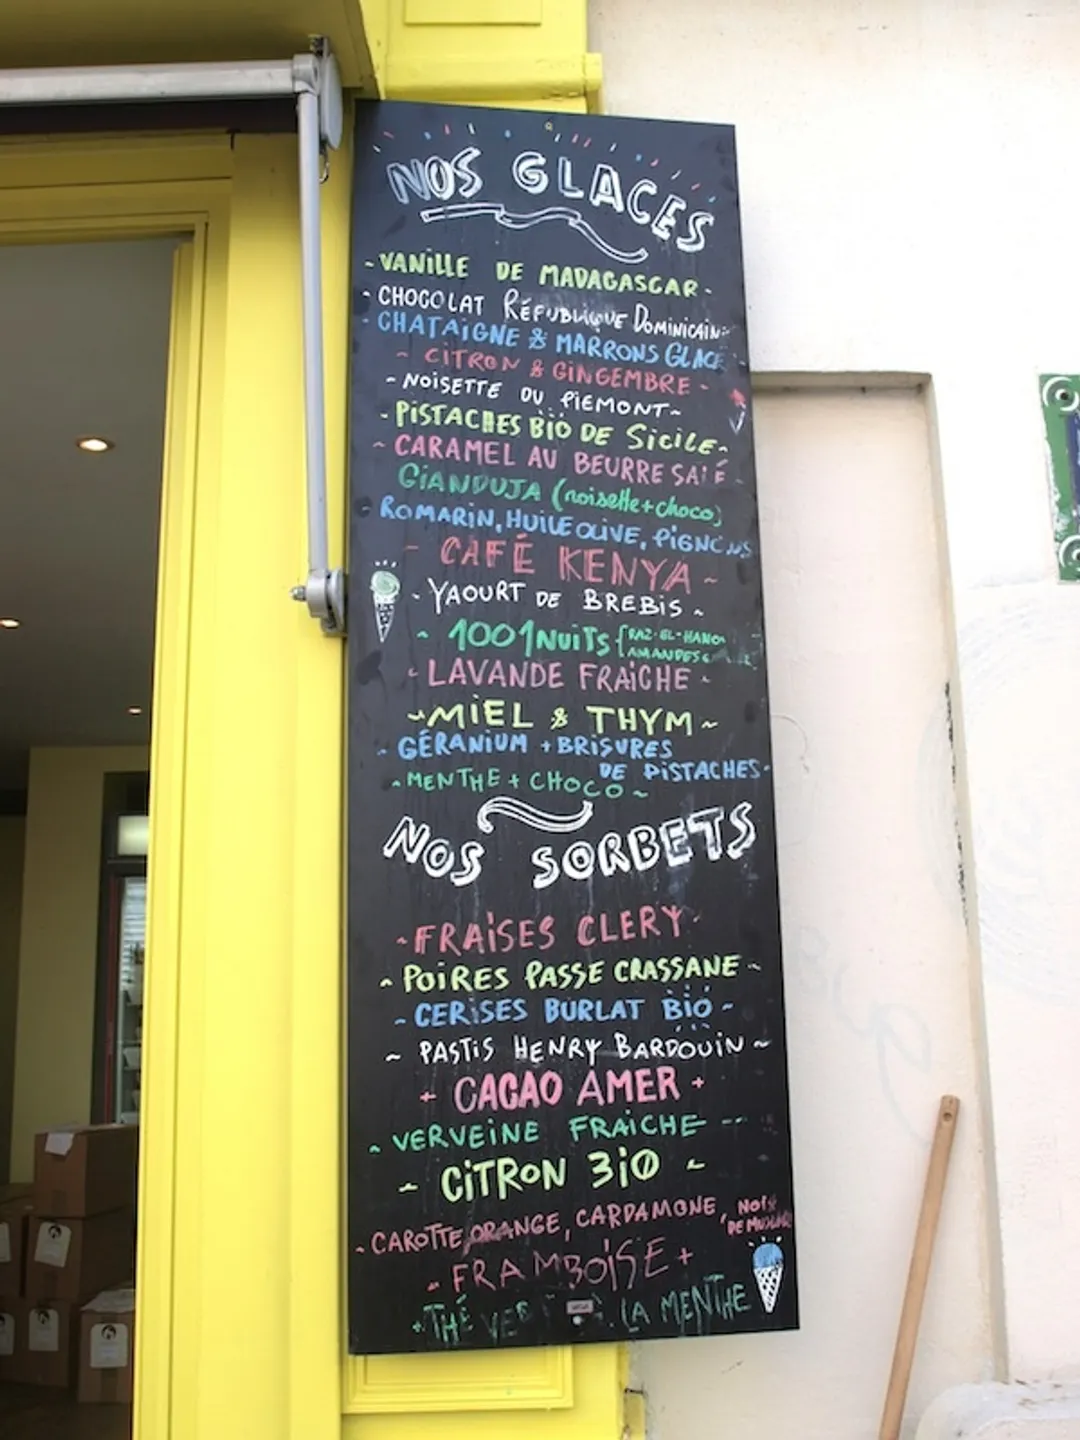 NOS GLACES
~VANILLE DE MADAGASCAR~
~CHOCOLAT RÉPUBLIQUE DOMINICAIN
CHATAIGNE & MARRONS GLACÉ
~ CITRON & GINGEMBRE ~
~NOISETTE DU PIEMONT~
~PISTACHES BIO DE SICILE~
~ CARAMEL AU BEURRE SALÉ
GIANDUJA (noisette+choco)
ROMARIN, HUILE OLIVE, PIGNONS
~ CAFÉ KENYA ~
~YAOURT DE BREBIS ~
~ 1001NUITS
RAZ-EL-HANO
AMANDES
~LAVANDE FRAICHE~
~MIEL & THYM~
~ GÉRANIUM + BRISURES
DE PISTACHES~
~MENTHE + CHOCO ~
NOS SORBETS
~FRAISES CLERY~
~POIRES PASSE CRASSANE~
~CERISES BURLAT BIO ~
~ PASTIS HENRY BARDOUIN ~
+ CACAO AMER +
~ VERVEINE FRAICHE ~
~ CITRON BIO ~
~CAROTTE, ORANGE, CARDAMONE, NOIX
DE
~ FRAMBOISE +
+THÉ VER À LA MENTHE